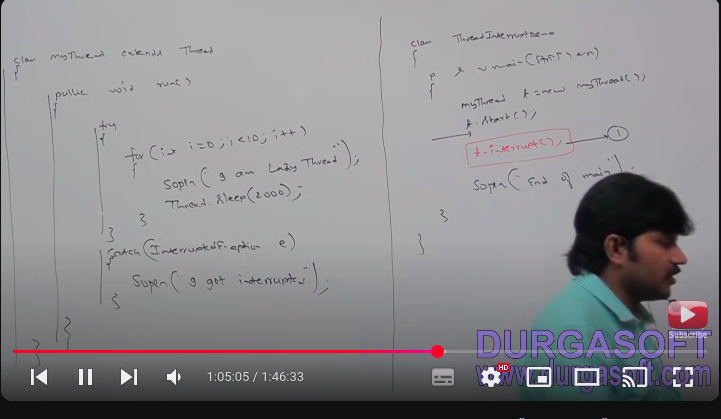 class myThread extends Thread
{
public void run()
{
try
{
for (int i=0; i<10; i++)
{
Sopln("I am Lazy Thread");
Thread.sleep(2000);
}
}
catch(InterruptedException e)
{
Sopln("I got interrupted");
}
}
}
class ThreadInterruptDemo
{
p s v main(String[] args)
{
myThread t=new myThread();
t.start();
t.interrupt();
1
Sopln("End of main");
}
}
Subscribe
DURGASOFT
www.durgasoft.com
1:05:05 / 1:46:33
HD